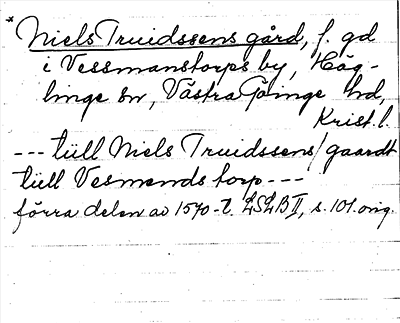 * Niels Truidssens gård, f. gd
i Vessmanstorps by, Häg-
linge sn, Västra Göinge hd,
Krist. l.
--- tüll Niels Truidssens/gaardt
tüll Vesmends torp ---
förra delen av 1570-t. LSLB II, s. 101. orig.